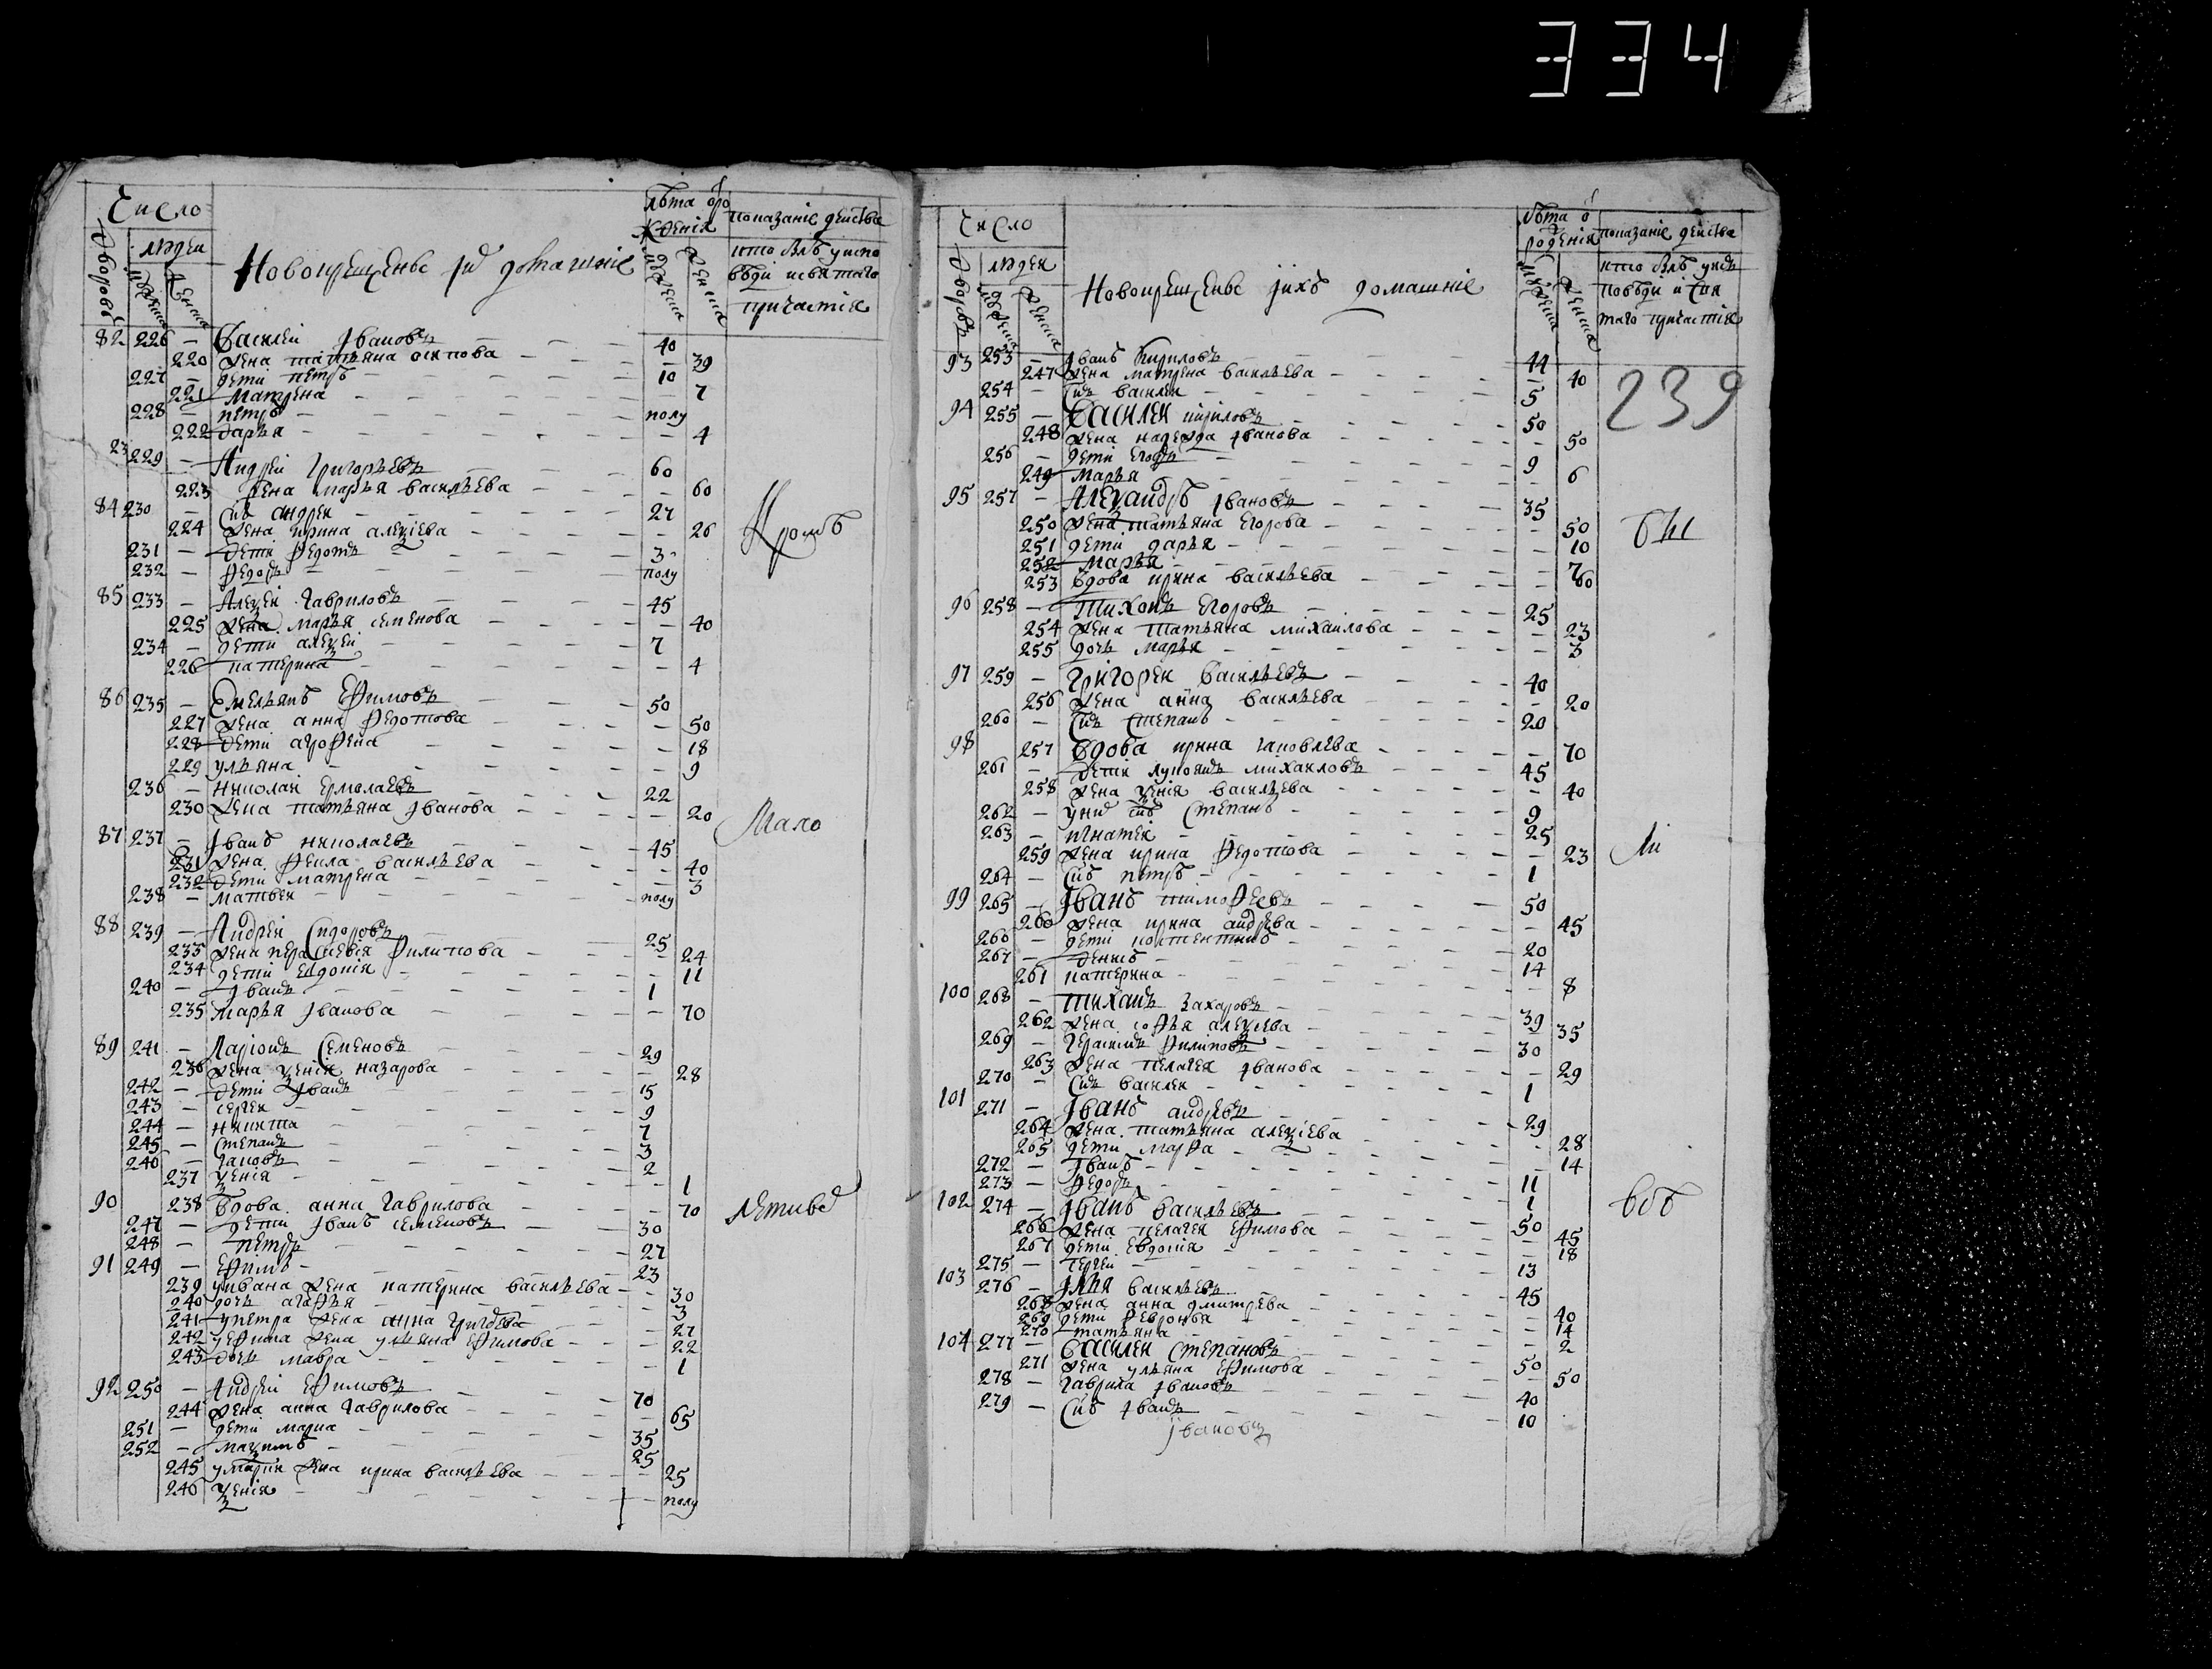 334
Число
людей
дворовъ
мужеска
женска
Новокрещенъе ји домашніе
лѣта ѿ ро
жденія
мужеска
женска
показаніе действа
кто былъ у испо
вѣди и святаго
причастія
82 226 — Василей Јвановъ — 40
220 жена татьяна осипова — 39
227 — дети петръ — 10
221 Матрена — 7
228 — петръ — полу
222 дарья — 4
23 229 — Андрей Григорьевъ — 60
223 жена марья васильева — 60
84 230 — снъ андреи — 27
224 жена ирина алеѯіева — 26
231 — дети Федотъ — 3
232 — Федоръ — полу
Кромѣ
85 233 — Алеѯеи Гавриловъ — 45
225 жена марья семенова — 40
234 — дети алеѯеи — 7
226 катерина — 4
86 235 — Емельянъ Ефимовъ — 50
227 жена анна Федотова — 50
228 дети агрофена — 18
229 ульяна — 9
236 — николаи Ермолаевъ — 22
230 жена татьяна Јванова — 20
Мало
87 237 — Јванъ николаевъ — 45
231 жена Фекла васильева — 40
232 дети матрена — 3
238 — матвеи — полу
88 239 — Андреи Сидоровъ — 25
233 жена пераскевія Филипова — 24
234 дети Евдокія — 11
240 — Јванъ — 1
235 марья Јванова — 70
89 241 — Ларіонъ Семеновъ — 29
236 жена ѯенія назарова — 28
242 — дети Јванъ — 15
243 — сергеи — 9
244 — никита — 7
245 — степанъ — 3
246 — яковъ — 2
237 ѯенія — 1
90 238 вдова анна Гаврилова — 70
летнвѣ
247 — дети Јванъ семеновъ — 30
248 — петръ — 27
91 249 — Ефимъ — 23
239 уивана жена катерина васильева — 30
240 дочь агафья — 3
241 упетра жена анна — 27
242 уефима жена ульяна Ефимова — 22
243 дочь мавра — 1
92 250 — Андреи Ефимовъ — 70
244 жена анна Гаврилова — 65
251 — дети марка — 35
252 — маѯимъ — 25
245 жена ирина васильева — 25
246 ѯенія — полу
Число
людеи
дворовъ
мужеска
женска
Новокрещенье јихъ домашніе
лѣта ѿ
рожденія
мужеска
женска
показаніе действа
кто былъ уиспъ
повѣди и Свя
таго причастія
93 253 — Јванъ Кириловъ — 44
247 жена матрена васильева — 40
239
254 — снъ василеи — 5
94 255 — Василеи кириловъ — 50
248 жена надежда Јванова — 50
256 — дети Егоръ — 9
249 марья — 6
95 257 — Алеѯандръ Јвановъ — 35
250 жена татьяна Егорова — 50
251 дети дарья — 10
252 марья — 7
253 вдова ирина васильева — 60
96 258 — Тихонъ Егоровъ — 25
254 жена татьяна михаилова — 23
255 дочь марья — 3
97 259 — Григореи васильевъ — 40
256 жена анна васильева — 20
260 — снъ Степанъ — 20
98 257 вдова ирина яковлева — 70
261 — дети лукоянъ михаиловъ — 45
258 жена ѯенія васильева — 40
262 — снъ Степанъ — 9
263 — игнатеи — 25
259 жена ирина Федотова — 23
264 — снъ петръ — 1
99 265 — Јванъ тимоѳеевъ — 50
260 жена ирина андрева — 45
266 — дети костентинъ — 20
267 — денисъ — 14
261 катерина — 8
100 268 — Тихонъ Захаровъ — 39
262 жена софья алеѯіева — 35
269 — Герасимъ Филиповъ — 30
263 жена пелагея Јванова — 29
270 — снъ василеи — 1
101 271 — Јванъ андревъ — 29
264 жена татьяна алеѯіева — 28
265 дети марфа — 14
272 — Јванъ — 11
273 — Федоръ — 1
102 274 — Јванъ васильевъ — 50
266 жена пелагея Ефимова — 45
267 дети Евдокія — 18
275 — Сергеи — 13
103 276 — Јлья васильевъ — 45
268 жена анна дмитрева — 40
269 дети Февронья — 14
270 татьяна — 2
104 277 — Василеи Степановъ — 50
271 жена ульяна Ефимова — 50
278 — Гаврила Јвановъ — 40
279 — снъ Јванъ — 10
Јвановъ